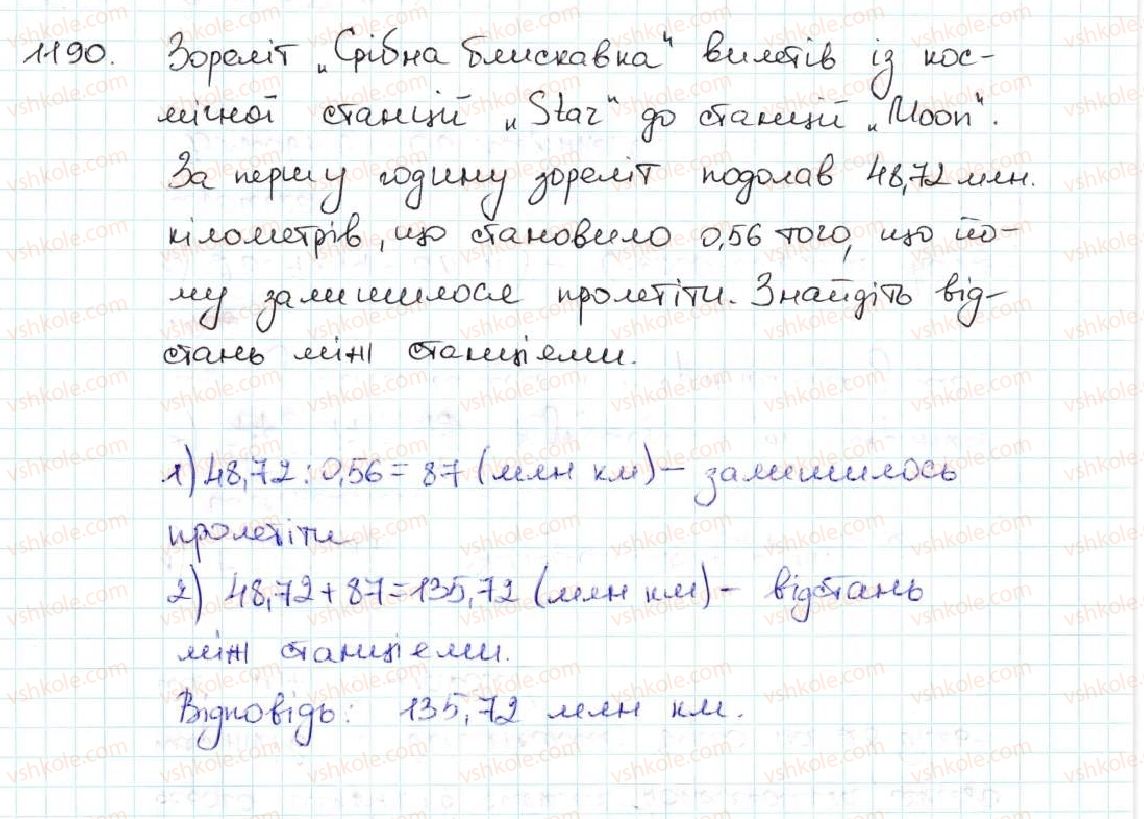 1190. Зореліт „Срібна блискавка" вилетів із кос-
мічної станції „Star" до станції „Moon".
За першу годину зореліт подолав 48,72 млн.
кілометрів, що становило 0,56 того, що йо-
му залишилося пролетіти. Знайдіть від-
стань між станціями.
1) 48,72 : 0,56 = 87 (млн км) – залишилось
пролетіти
2) 48,72 + 87 = 135,72 (млн км) – відстань
між станціями.
Відповідь: 135,72 млн км.